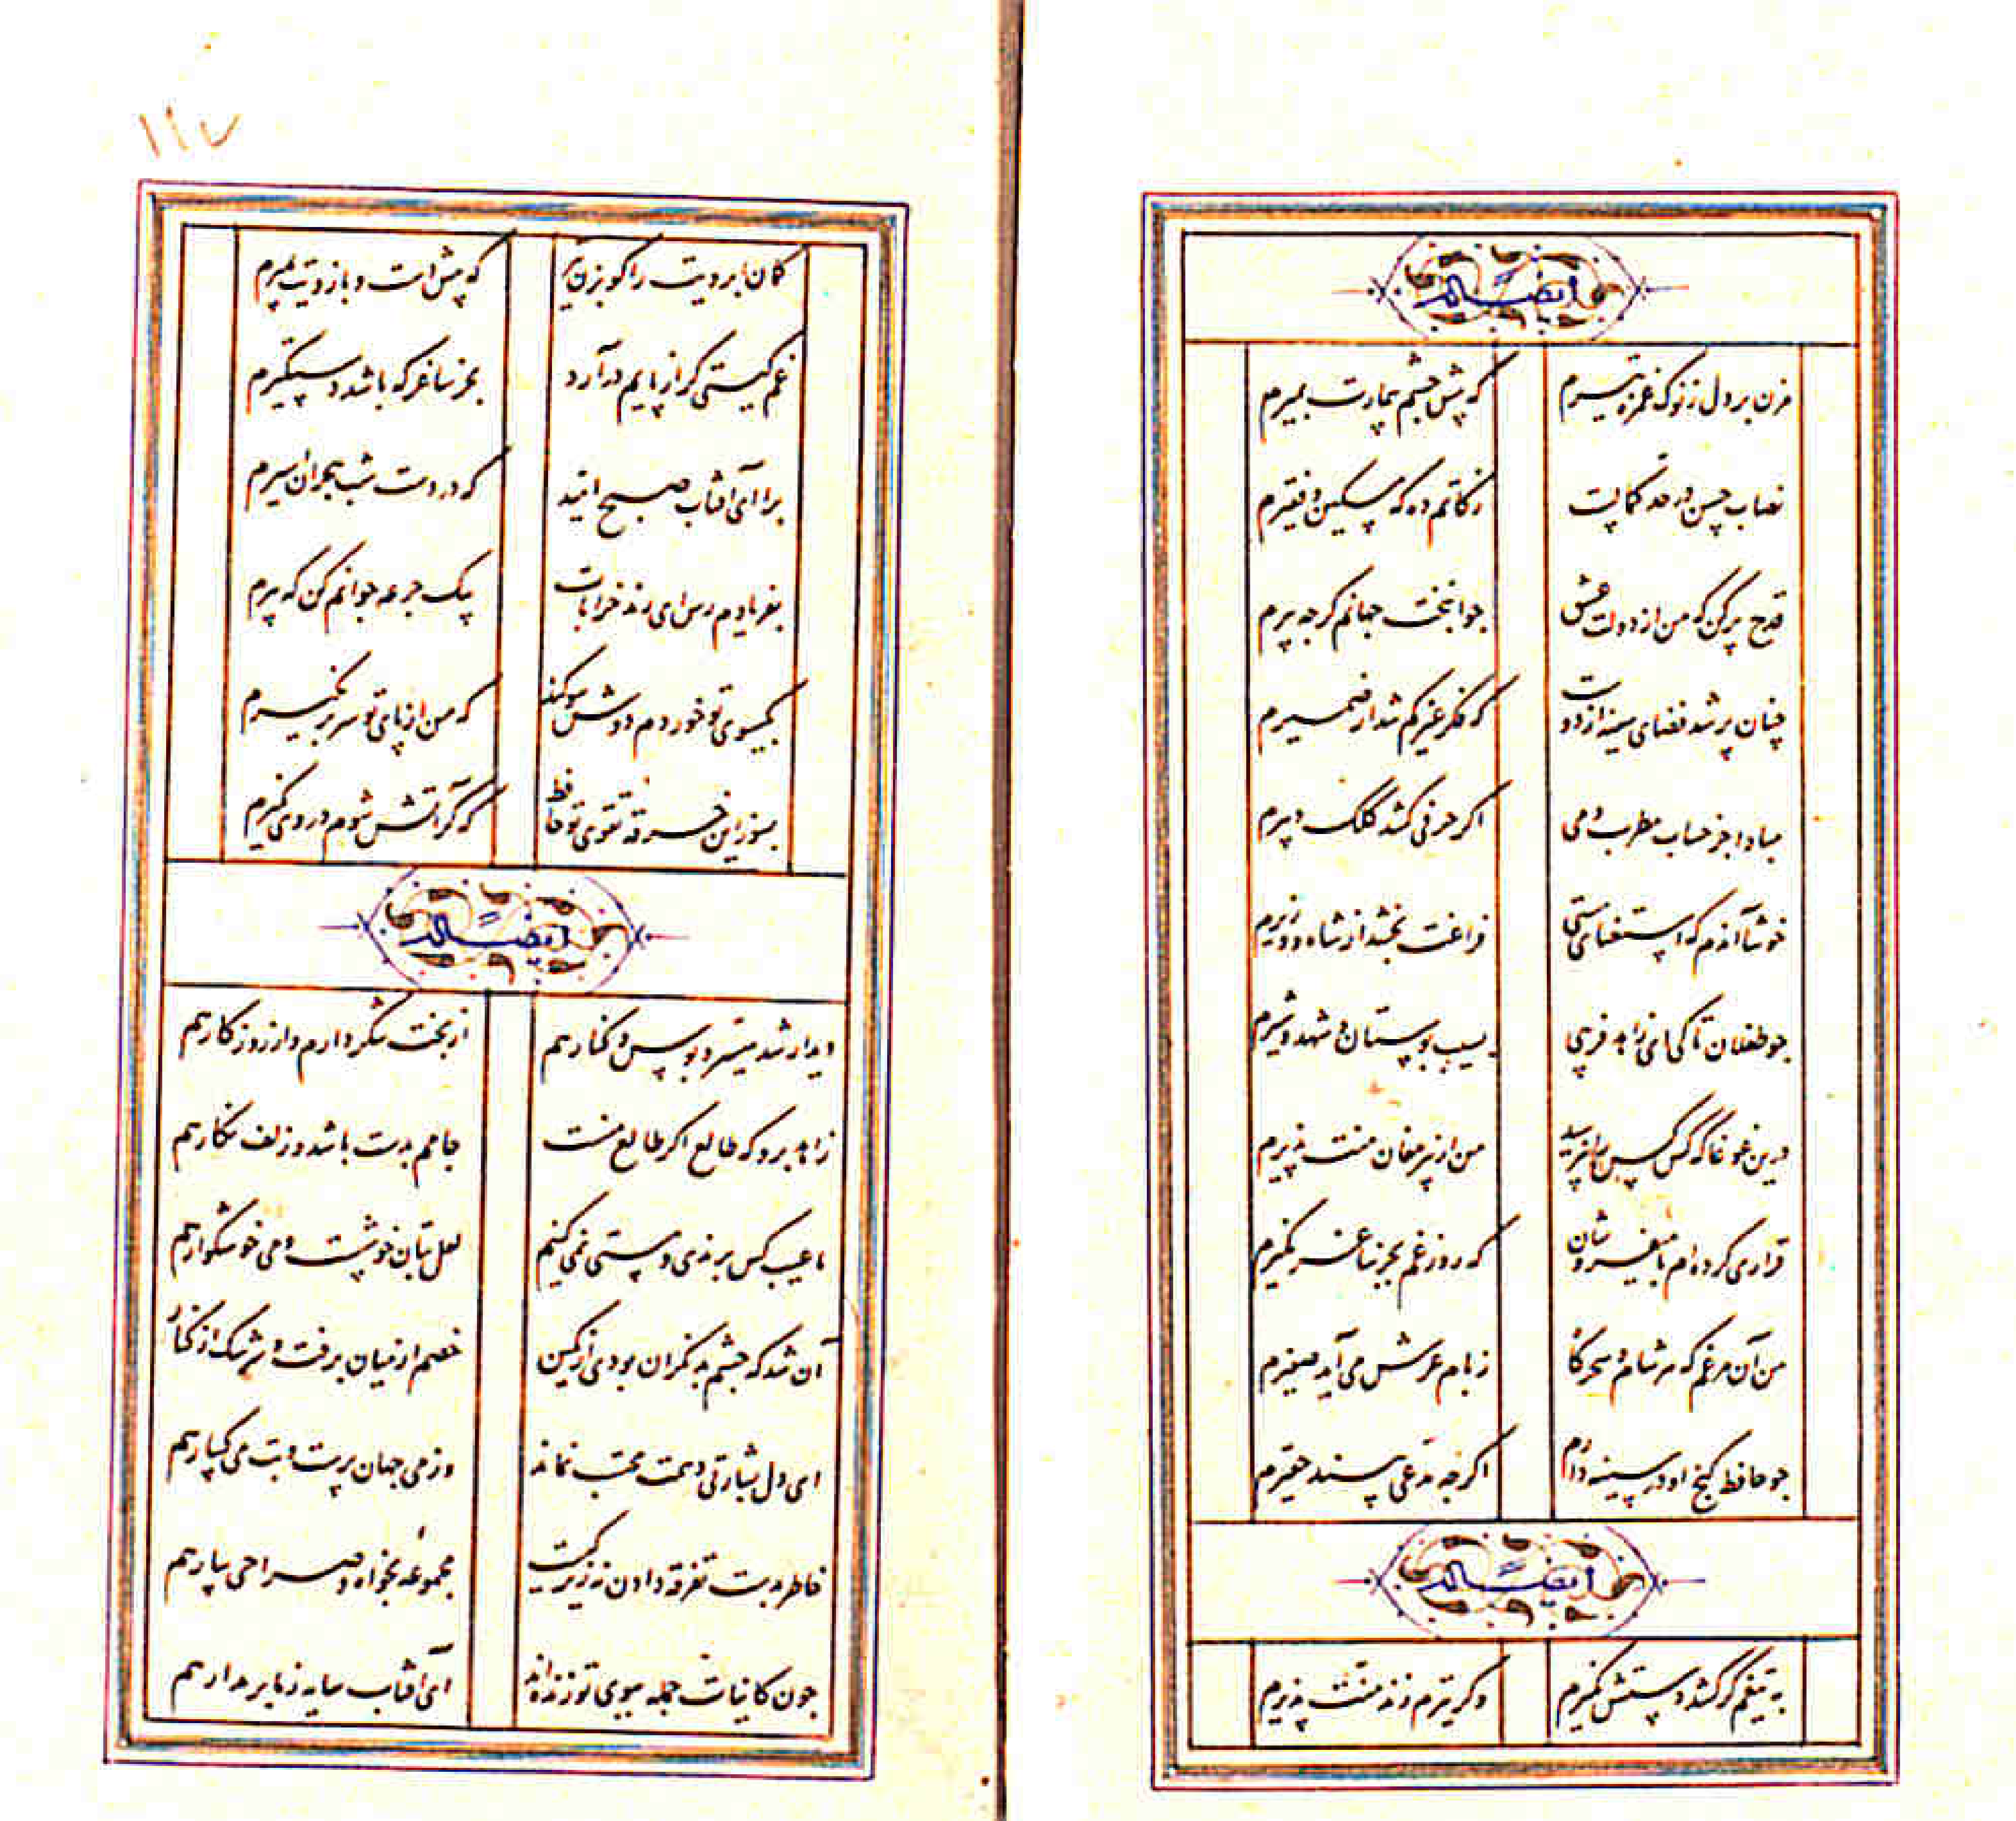 ایضاً له
مزن بر دل ز نوک غمزه تیرم که پیش چشم بیمارت بمیرم
نصاب حسن در حد کمالست زکاتم ده که مسکین و فقیرم
قدح پر کن که من از دولت عشق جوانبخت جهانم کرچه پیرم
چنان پر شد فضای سینه از دوست که فکر غیر کم شد از ضمیرم
مبادا جز حساب مطرب و می اکر حرفی کشد کلک دبیرم
خوشا آندم که استغنای مستی فراغت بخشد از شاه و وزیرم
جو طفلان تا کی ای زاهد فریبی بسیب بوستان و شهد و شیرم
درین غوغا که کس کس را نپرسد من از پیر مغان منت پذیرم
قراری کرده‌ام با میفروشان که روز غم بجز ساغر نکیرم
من آن مرغم که هر شام و سحرکاه ز بام عرش می‌آید صفیرم
جو حافظ کنج او در سینه دارم اکرچه مدعی بیند حقیرم
ایضاً له
به تیغم کر کشد دستش نکیرم وکر تیرم زند منت پذیرم
۱۱۷
کمان ابرویت را کو بزن تیر که پیش دست و بازویت بمیرم
غم کیتی کر از پایم درآرد بجز ساغر که باشد دستکیرم
برآ ای آفتاب صبح امید که در دست شب هجران اسیرم
بفریادم رس ای رند خرابات بیک جرعه جوانم کن که پیرم
بکیسوی تو خوردم دوش سوکند که من از پای تو سر بر نکیرم
بسوز این خرقه تقوی تو حافظ که کر آتش شوم در وی نکیرم
ایضاً له
دیدار شد میسر و بوس و کنار هم از بخت شکر دارم و از روزکار هم
زاهد برو که طالع اکر طالع منست جامم بدست باشد و زلف نکار هم
ما عیب کس برندی و مستی نمی‌کنیم لعل بتان خوشست و می خوشکوار هم
آن شد که چشم بد نکران بودی از کمین خصم از میان برفت و سرشک از کنار
ای دل بشارتی دهمت محتسب نماند وز می جهان پرست و بت می کسار هم
خاطر بدست تفرقه دادن نه زیرکیست مجموعه بخواه و صراحی بیار هم
جون کاینات جمله ببوی تو زنده‌اند ای آفتاب سایه ز ما بر مدار هم